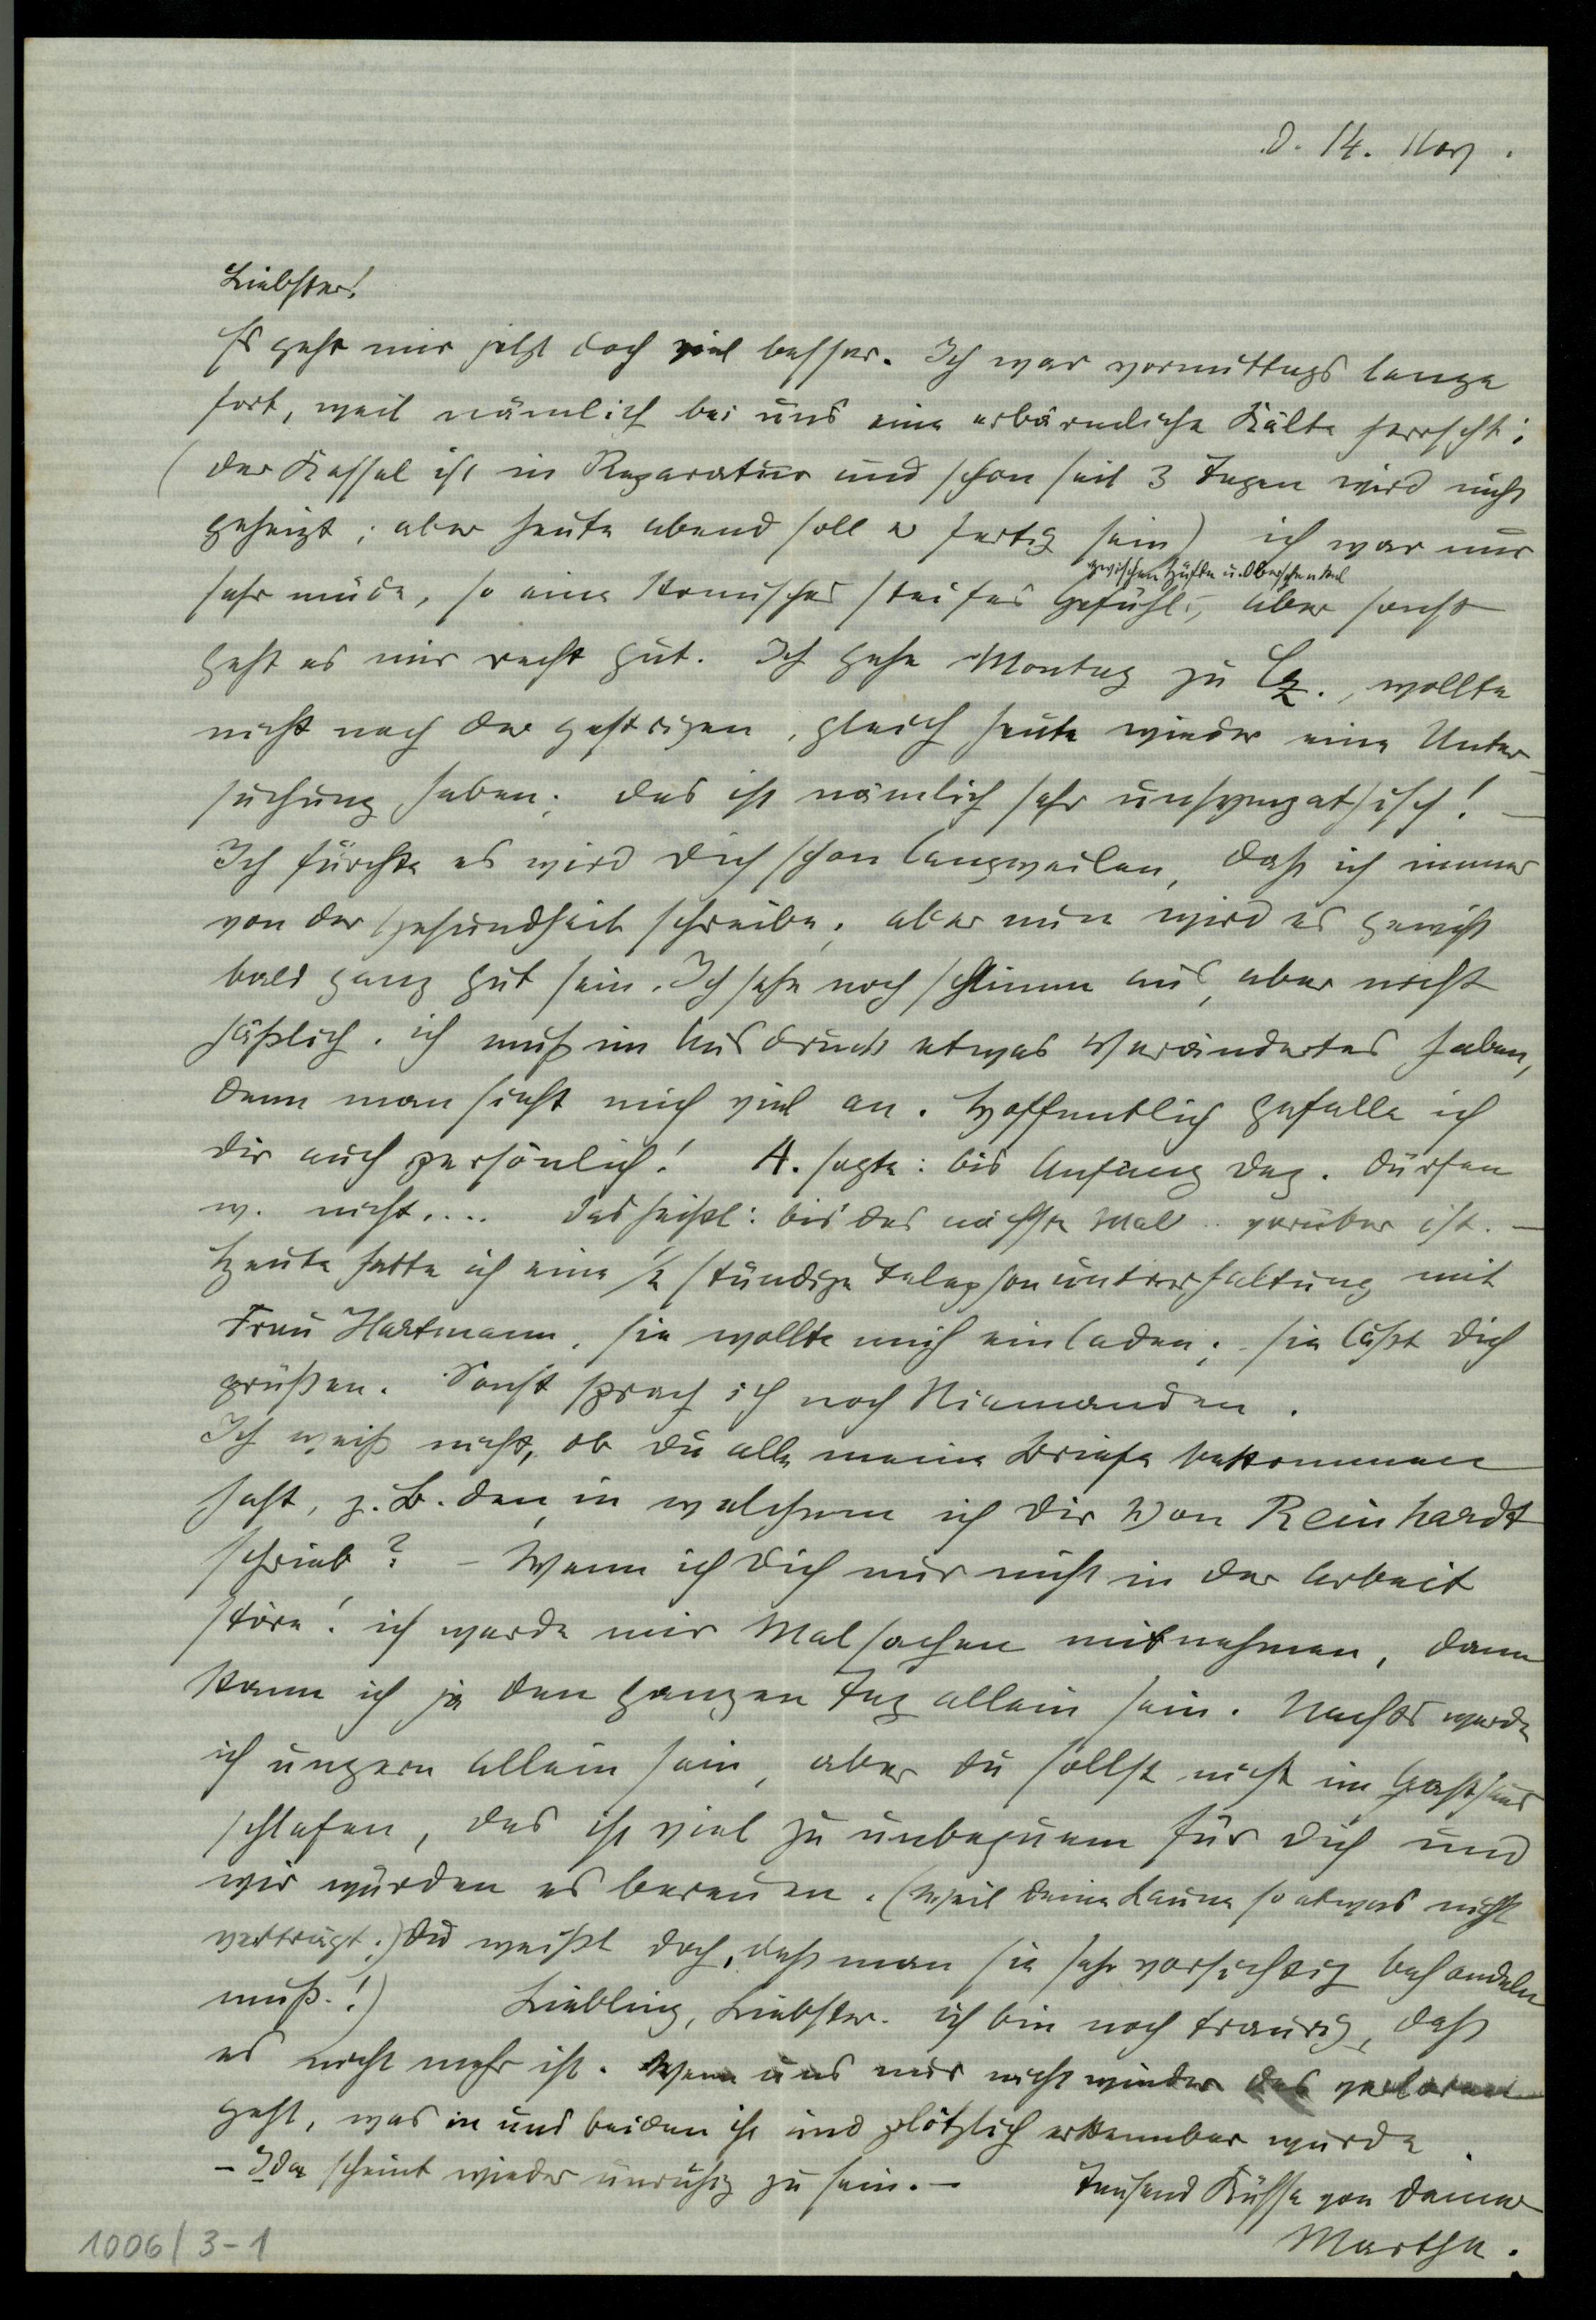 D. 14. Nov.
Liebster!
Es geht mir jetzt doch viel besser. Ich war vormittags lange
fort, weil nämlich bei uns eine erbärmliche Kälte herrscht;
(der Kessel ist in Reparatur und schon seit 3 Tagen wird nicht
geheizt; aber heute abend soll er fertig sein) ich war nur
zwischen Hüfte u. Oberschenkel
sehr müde, so eine komisches steifes Gefühl, aber sonst
geht es mir recht gut. Ich gehe Montag zu Cz., wollte
nicht nach der gestrigen, gleich heute wieder eine Unter-
suchung haben; das ist nämlich sehr unsympathisch! —
Ich fürchte es wird dich schon langweilen, daß ich immer
von der Gesundheit schreibe; aber nun wird es gewiß
bald ganz gut sein. Ich sehe noch schlimm aus, aber nicht
häßlich. ich muß im Ausdruck etwas Verändertes haben,
denn man sieht mich viel an. Hoffentlich gefalle ich
dir auch persönlich! A. sagte: bis Anfang Dez. dürfen
w. nicht.... das heißt: bis das nächste Mal .. vorüber ist. —
Heute hatte ich eine 1/2 stündige Telephonunterhaltung mit
Frau Hartmann, sie wollte mich einladen; sie läßt dich
grüßen. Sonst sprach ich noch Niemanden.
Ich weiß nicht, ob du alle meine Briefe bekommen
hast, z. B. den, in welchem ich dir von Reinhardt
schrieb? – Wenn ich dich nur nicht in der Arbeit
störe! ich werde mir Malsachen mitnehmen, dann
kann ich ja den ganzen Tag allein sein. Nachts werde
ich ungern allein sein, aber du sollst nicht im Gasthaus
schlafen, das ist viel zu unbequem für dich und
wir würden es bereuen. (Weil deine Laune so etwas nicht
verträgt;) Du weißt doch, daß man sie sehr vorsichtig behandeln
muß.!) Liebling, Liebster. ich bin noch traurig, daß
es nicht mehr ist. Wenn uns nur nicht wieder das verloren
geht, was in uns beiden ist und plötzlich erkennbar wurde.
– Ida scheint wieder unruhig zu sein. – Tausend Küsse von deiner
Martha.
1006/3-1